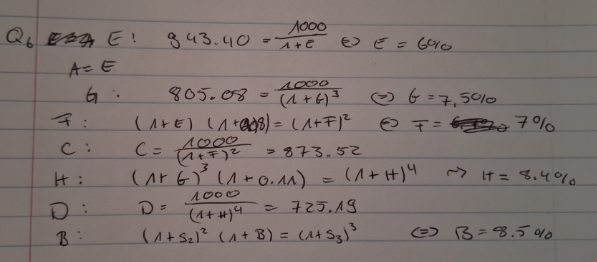 Q6 E: 943.40 = 1000/(1+E) ⇔ E = 6%
A = E
G: 805.08 = 1000/(1+G)^3 ⇔ G = 7,5%
F: (1+E) (1+0.08) = (1+F)^2 ⇔ F = 7%
C: C = 1000/(1+F)^2 = 873.52
H: (1+G)^3 (1+0.11) = (1+H)^4 ⇝ H = 8.4%
D: D = 1000/(1+H)^4 = 725.19
B: (1+S2)^2 (1+B) = (1+S3)^3 ⇔ B = 8.5%